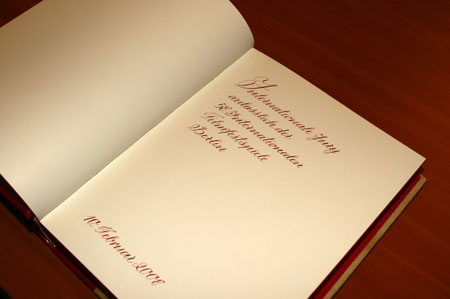 Internationale Jury
anlässlich der
56. Internationalen
Filmfestspiele
Berlin
10. Februar 2006